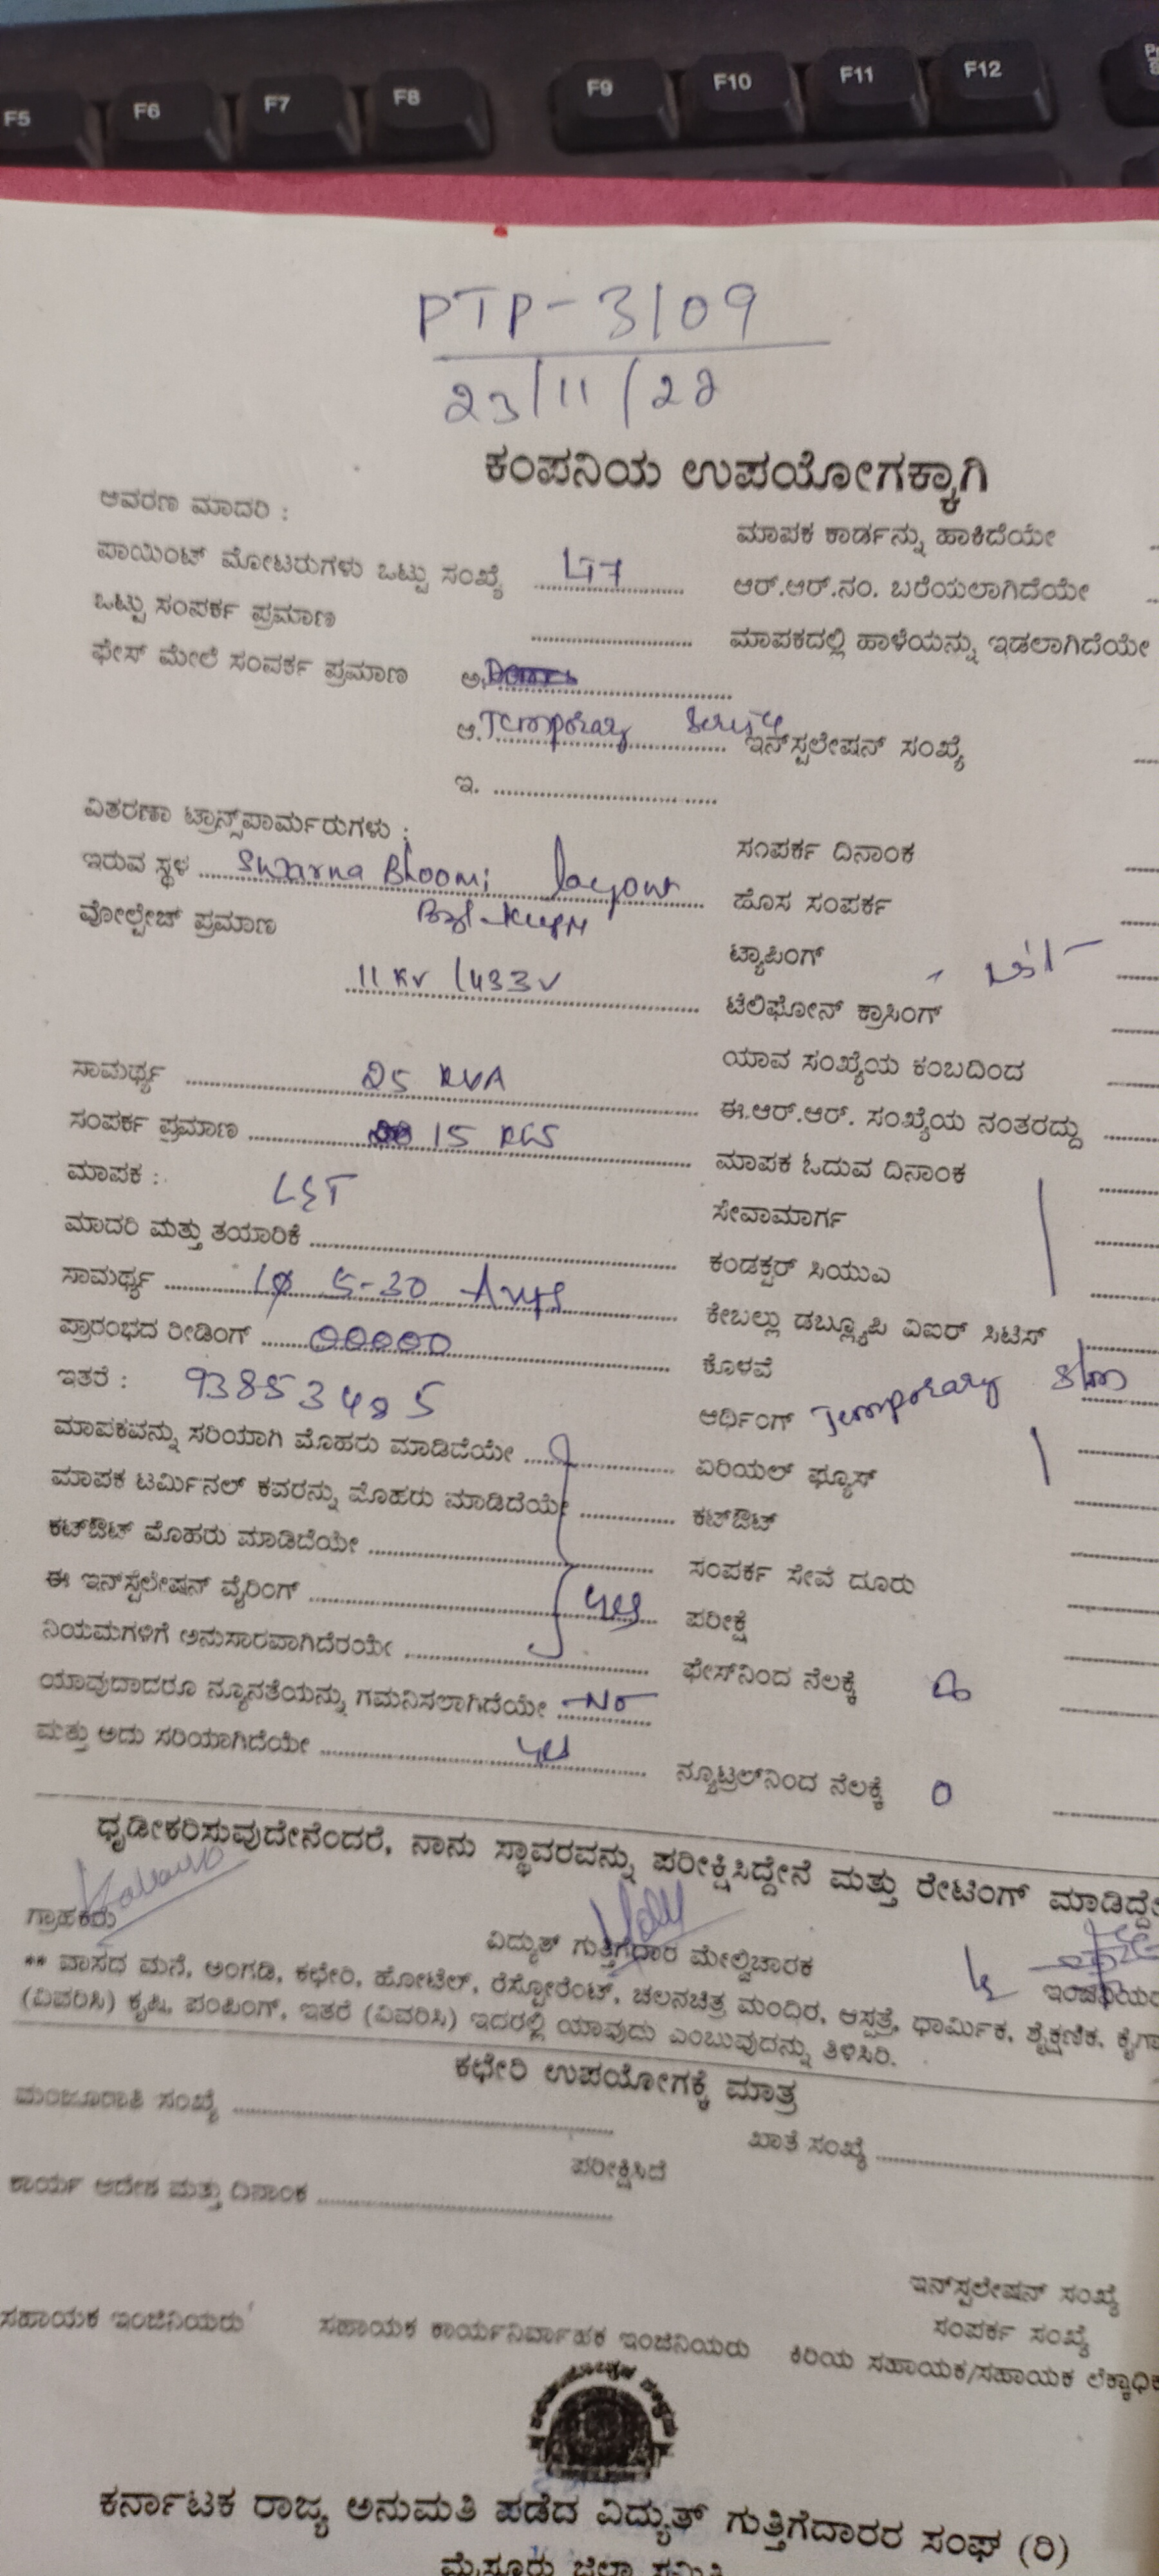 F5 F6 F7 F8 F9 F10 F11 F12
PTP-3109
23/11/22
ಕಂಪನಿಯ ಉಪಯೋಗಕ್ಕಾಗಿ
ಆವರಣ ಮಾದರಿ :
ಮಾಪಕ ಕಾರ್ಡನ್ನು ಹಾಕಿದೆಯೇ
ಪಾಯಿಂಟ್ ಮೋಟರುಗಳು ಒಟ್ಟು ಸಂಖ್ಯೆ LT7
ಆರ್.ಆರ್.ನಂ. ಬರೆಯಲಾಗಿದೆಯೇ
ಒಟ್ಟು ಸಂಪರ್ಕ ಪ್ರಮಾಣ
ಮಾಪಕದಲ್ಲಿ ಹಾಳೆಯನ್ನು ಇಡಲಾಗಿದೆಯೇ
ಫೇಸ್ ಮೇಲೆ ಸಂಪರ್ಕ ಪ್ರಮಾಣ ಅ.
ಆ. Temporary
ಇನ್‌ಸ್ಟಲೇಷನ್ ಸಂಖ್ಯೆ
ಇ.
ವಿತರಣಾ ಟ್ರಾನ್ಸ್‌ಪಾರ್ಮರುಗಳು :
ಸಂಪರ್ಕ ದಿನಾಂಕ
ಇರುವ ಸ್ಥಳ Swarna Bhoomi layout
ಹೊಸ ಸಂಪರ್ಕ
ವೋಲ್ಟೇಜ್ ಪ್ರಮಾಣ
ಟ್ಯಾಪಿಂಗ್
11 KV / 433 V
ಟೆಲಿಫೋನ್ ಕ್ರಾಸಿಂಗ್
ಯಾವ ಸಂಖ್ಯೆಯ ಕಂಬದಿಂದ
ಸಾಮರ್ಥ್ಯ 25 KVA
ಈ.ಆರ್.ಆರ್. ಸಂಖ್ಯೆಯ ನಂತರದ್ದು
ಸಂಪರ್ಕ ಪ್ರಮಾಣ 15
ಮಾಪಕ ಓದುವ ದಿನಾಂಕ
ಮಾಪಕ : L&T
ಸೇವಾಮಾರ್ಗ
ಮಾದರಿ ಮತ್ತು ತಯಾರಿಕೆ
ಕಂಡಕ್ಟರ್ ಸಿಯುಎ
ಸಾಮರ್ಥ್ಯ 1ϕ 5-30 Amps
ಕೇಬಲ್ಲು ಡಬ್ಲ್ಯೂಪಿ ವಿಐರ್ ಸಿಟಿಸ್
ಪ್ರಾರಂಭದ ರೀಡಿಂಗ್ 00000
ಕೊಳವೆ
ಇತರೆ : 93853485
ಆರ್ಥಿಂಗ್ Temporary
ಮಾಪಕವನ್ನು ಸರಿಯಾಗಿ ಮೊಹರು ಮಾಡಿದೆಯೇ
ಏರಿಯಲ್ ಫ್ಯೂಸ್
ಮಾಪಕ ಟರ್ಮಿನಲ್ ಕವರನ್ನು ಮೊಹರು ಮಾಡಿದೆಯೇ
ಕಟ್‌ಔಟ್
ಕಟ್‌ಔಟ್ ಮೊಹರು ಮಾಡಿದೆಯೇ
ಸಂಪರ್ಕ ಸೇವೆ ದೂರು
ಈ ಇನ್‌ಸ್ಟಲೇಷನ್ ವೈರಿಂಗ್ yes
ಪರೀಕ್ಷೆ
ನಿಯಮಗಳಿಗೆ ಅನುಸಾರವಾಗಿದೆರಯೇ
ಫೇಸ್‌ನಿಂದ ನೆಲಕ್ಕೆ
ಯಾವುದಾದರೂ ನ್ಯೂನತೆಯನ್ನು ಗಮನಿಸಲಾಗಿದೆಯೇ No
ಮತ್ತು ಅದು ಸರಿಯಾಗಿದೆಯೇ yes
ನ್ಯೂಟ್ರಲ್‌ನಿಂದ ನೆಲಕ್ಕೆ 0
ಧೃಡೀಕರಿಸುವುದೇನೆಂದರೆ, ನಾನು ಸ್ಥಾವರವನ್ನು ಪರೀಕ್ಷಿಸಿದ್ದೇನೆ ಮತ್ತು ರೇಟಿಂಗ್
ಗ್ರಾಹಕರು
ವಿದ್ಯುತ್ ಗುತ್ತಿಗೆದಾರ ಮೇಲ್ವಿಚಾರಕ
** ವಾಸದ ಮನೆ, ಅಂಗಡಿ, ಕಛೇರಿ, ಹೋಟೆಲ್, ರೆಸ್ಟೋರೆಂಟ್, ಚಲನಚಿತ್ರ ಮಂದಿರ, ಆಸ್ಪತ್ರೆ, ಧಾರ್ಮಿಕ, ಶೈಕ್ಷಣಿಕ,
(ವಿವರಿಸಿ) ಕೃಷಿ, ಪಂಪಿಂಗ್, ಇತರೆ (ವಿವರಿಸಿ) ಇದರಲ್ಲಿ ಯಾವುದು ಎಂಬುವುದನ್ನು ತಿಳಿಸಿರಿ.
ಕಛೇರಿ ಉಪಯೋಗಕ್ಕೆ ಮಾತ್ರ
ಮಂಜೂರಾತಿ ಸಂಖ್ಯೆ
ಖಾತೆ ಸಂಖ್ಯೆ
ಪರೀಕ್ಷಿಸಿದೆ
ಕಾರ್ಯ ಆದೇಶ ಮತ್ತು ದಿನಾಂಕ
ಇನ್‌ಸ್ಟಲೇಷನ್ ಸಂಖ್ಯೆ
ಸಂಪರ್ಕ ಸಂಖ್ಯೆ
ಸಹಾಯಕ ಇಂಜಿನಿಯರು ಸಹಾಯಕ ಕಾರ್ಯನಿರ್ವಾಹಕ ಇಂಜಿನಿಯರು ಕಿರಿಯ ಸಹಾಯಕ/ಸಹಾಯಕ
ಕರ್ನಾಟಕ ರಾಜ್ಯ ಅನುಮತಿ ಪಡೆದ ವಿದ್ಯುತ್ ಗುತ್ತಿಗೆದಾರರ ಸಂಘ (ರಿ)
ಮೈಸೂರು ಜಿಲ್ಲಾ ಸಮಿತಿ